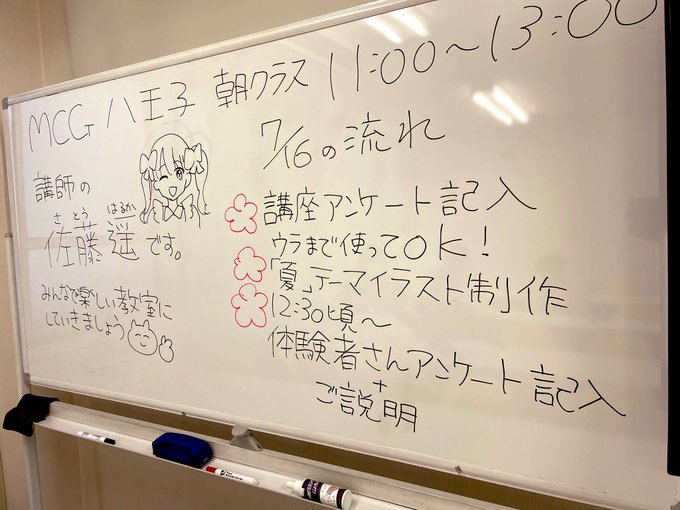 MCG 八王子 朝クラス 11:00~13:00
講師の
さとう はるか
佐藤 遥です。
みんなで楽しい教室に
していきましょう
7/16の流れ
講座アンケート記入
ウラまで使ってOK!
「夏」テーマイラスト制作
12:30頃~
体験者さんアンケート記入
+
ご説明